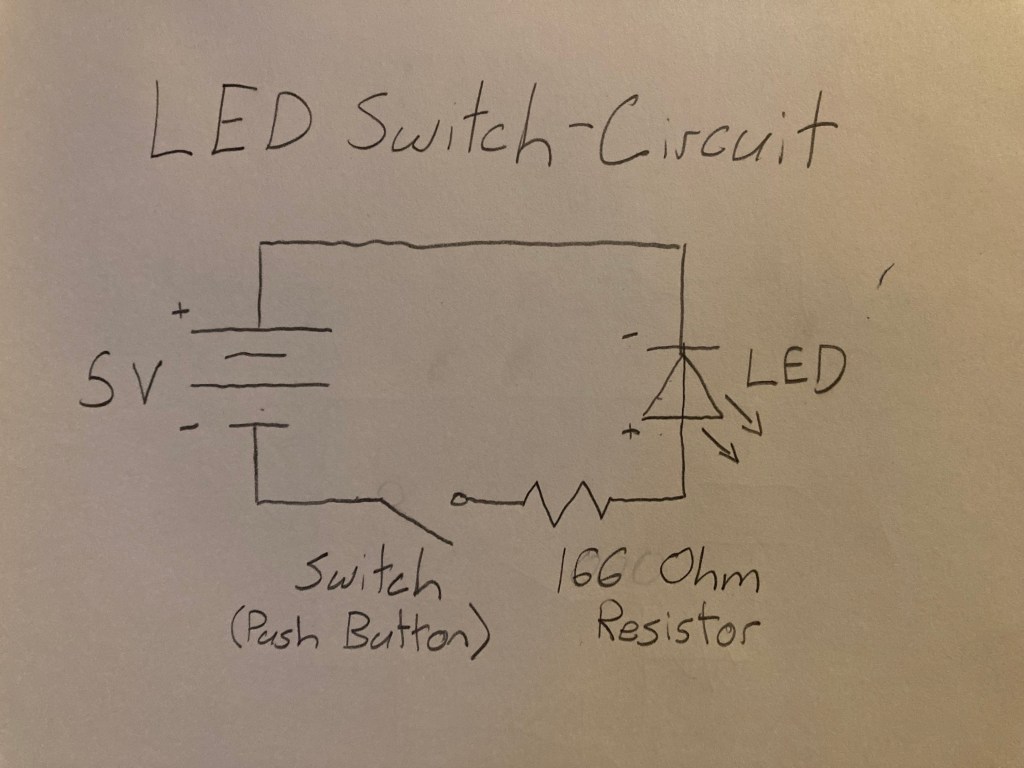 LED Switch-Circuit
+
-
5V
LED
+
-
Switch
(Push Button)
166 Ohm
Resistor